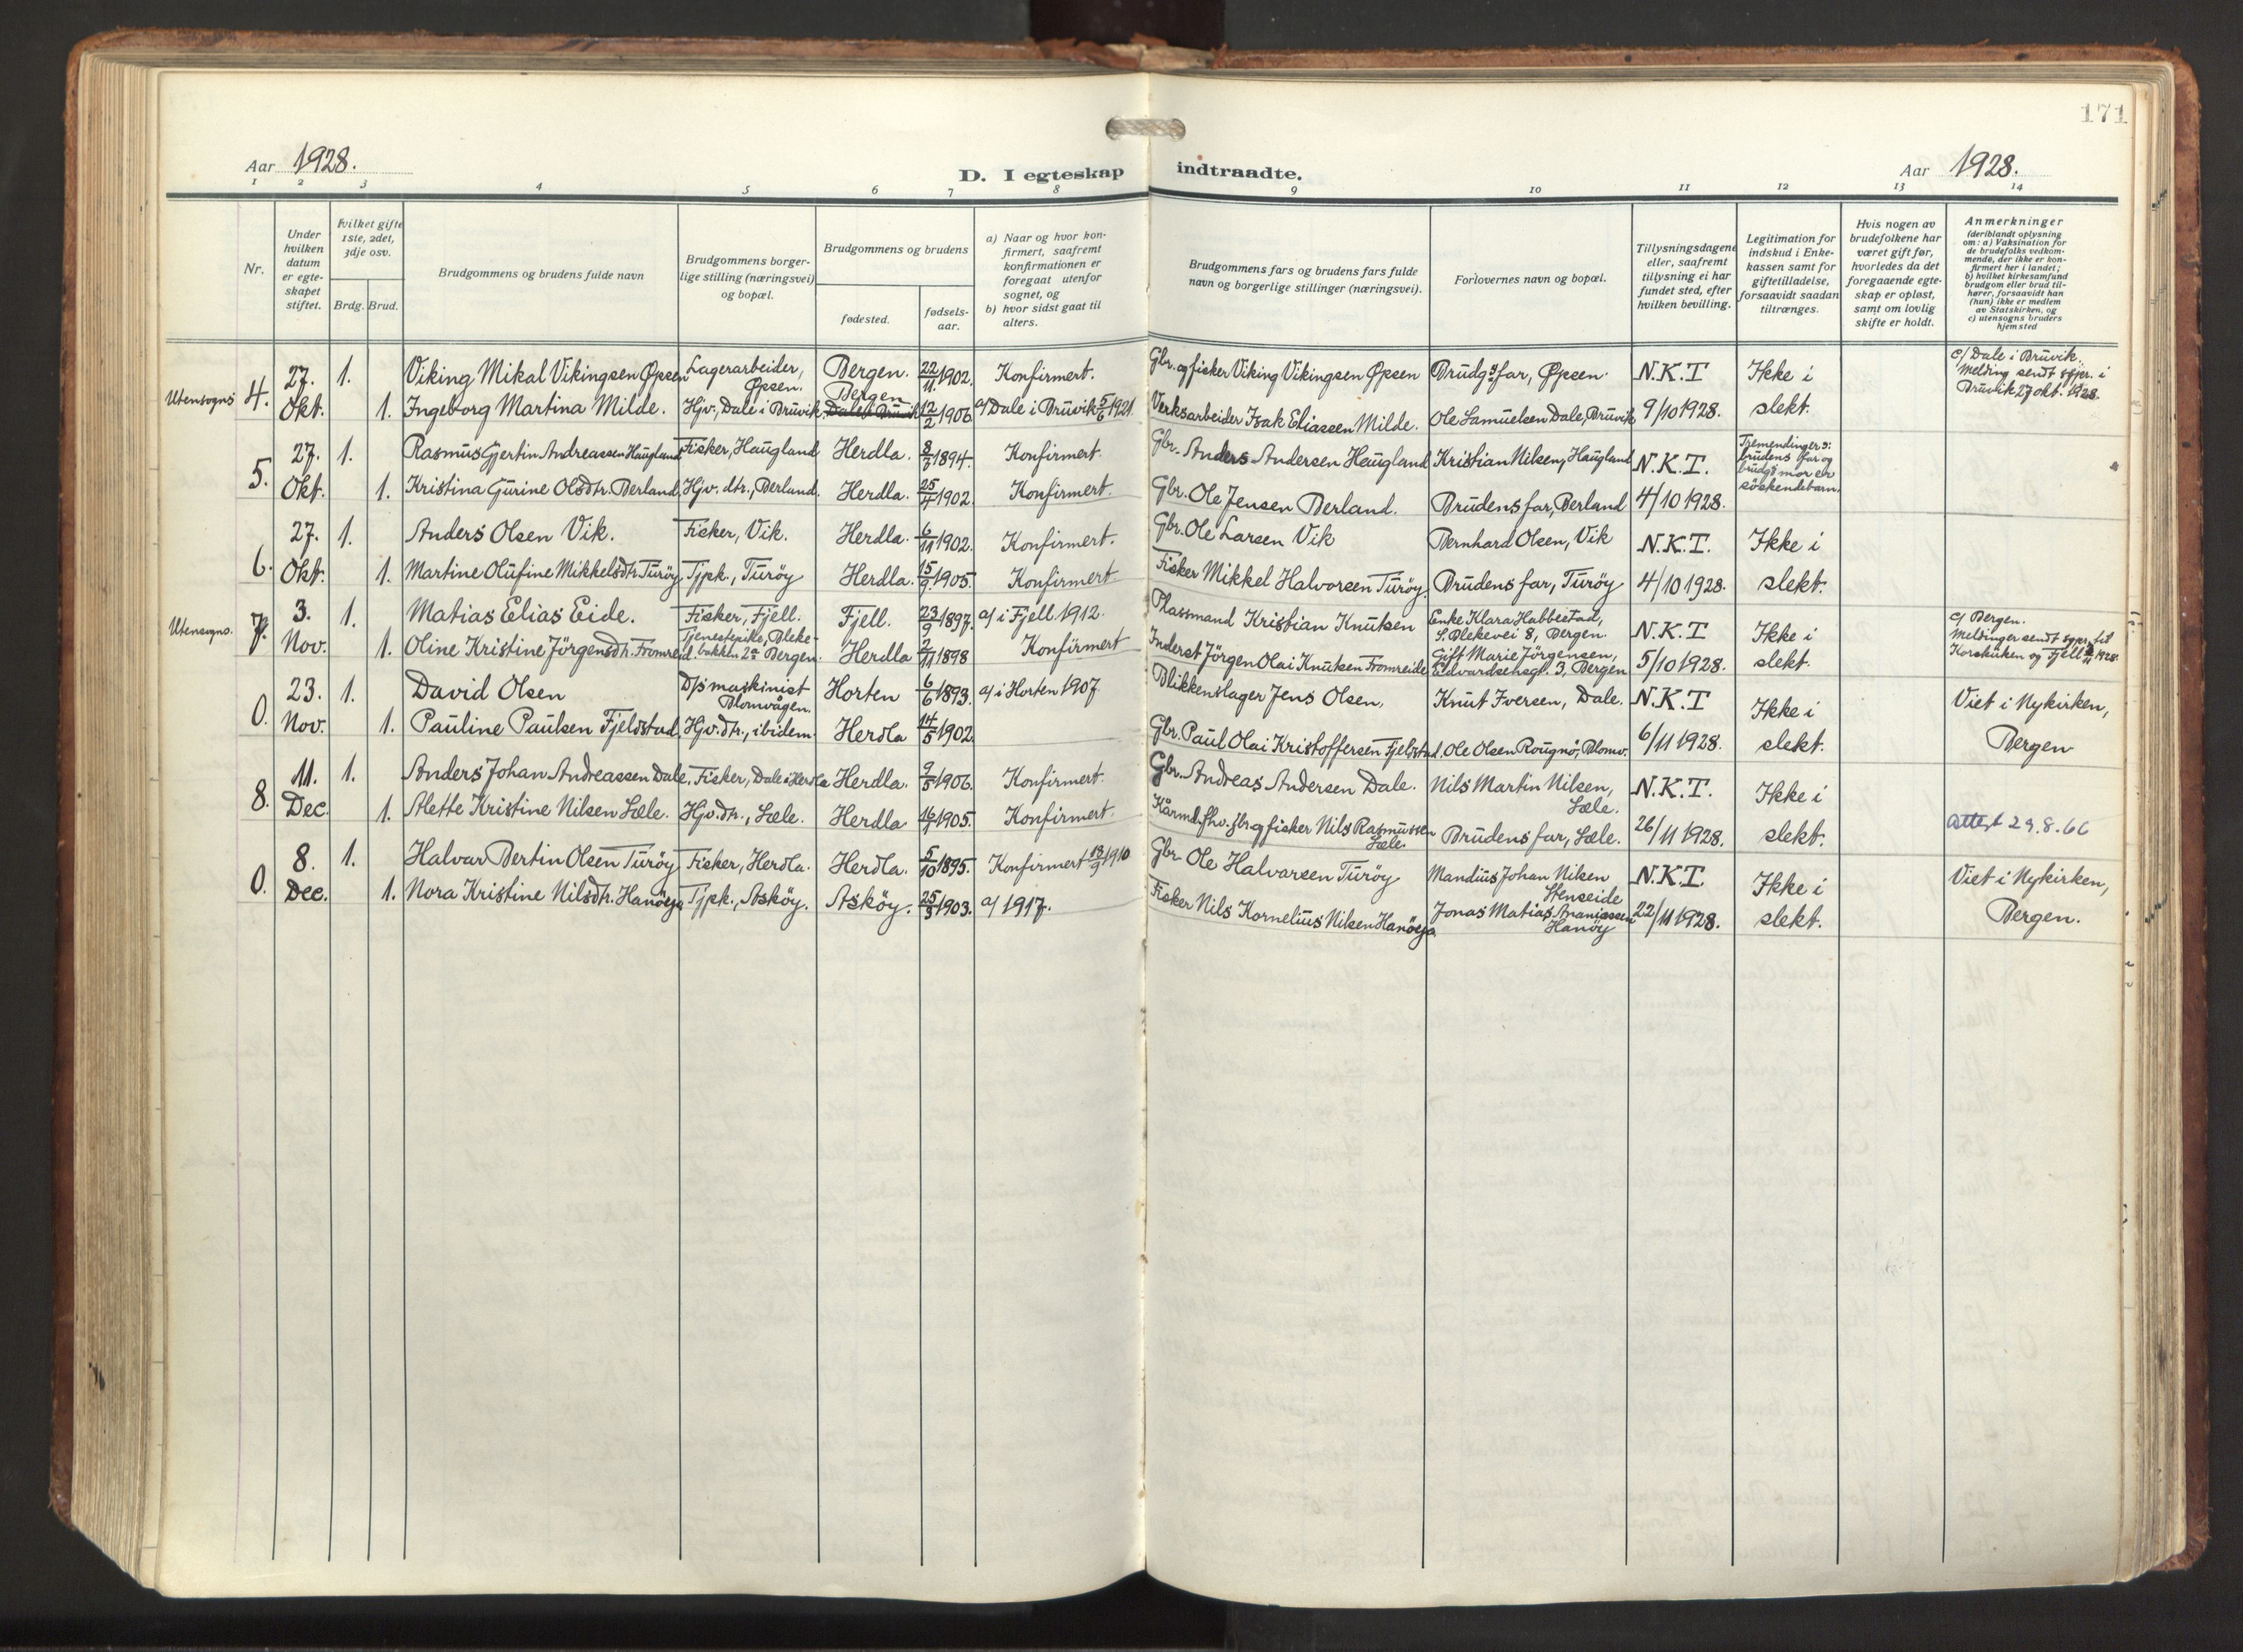 171
Aar 1928.
D. I egteskap indtraadte.
Aar 1928.
1 2 3 4 5 6 7 8 9 10 11 12 13 14
Nr.
Under hvilken datum er egteskapet stiftet.
Hvilket gifte 1ste, 2det, 3dje osv.
Brdg. Brud.
Brudgommens og brudens fulde navn
Brudgommens borgerlige stilling (næringsvei) og bopæl.
Brudgommens og brudens
fødested.
fødselsaar.
a) Naar og hvor konfirmert, saafremt konfirmationen er foregaat utenfor sognet, og
b) hvor sidst gaat til alters.
Brudgommens fars og brudens fars fulde navn og borgerlige stillinger (næringsvei).
Forlovernes navn og bopæl.
Tillysningsdagene eller, saafremt tillysning ei har fundet sted, efter hvilken bevilling.
Legitimation for indskud i Enkekassen samt for giftetilladelse, forsaavidt saadan tiltrænges.
Hvis nogen av brudefolkene har været gift før, hvorledes da det foregaaende egteskap er opløst, samt om lovlig skifte er holdt.
Anmerkninger (deriblandt oplysning om: a) Vaksination for de brudefolks vedkommende, der ikke er konfirmert her i landet; b) hvilket kirkesamfund brudgom eller brud tilhører, forsaavidt han (hun) ikke er medlem av Statskirken, og c) utensogns bruders hjemsted
Utensogns 4. 27. Okt. 1. Viking Mikal Vikingsen Øpsen Lagerarbeider, Øpsen. Bergen. 22/11 1902. Konfirmert. Gbr. og fisker Viking Vikingsen Øpsen Brudg.s far, Øpsen. N.K.T Ikke i c/ Dale i Bruvik. Melding sendt sspr. i Bruvik 27 okt. 1928.
1. Ingeborg Martina Milde. Hjv., Dale i Bruvik. Bergen Dale i Bruvik 12/2 1906. a/ Dale i Bruvik 5/6 1921. Verksarbeider Isak Eliassen Milde. Ole Samuelsen Dale, Bruvik 9/10 1928. slekt.
5. 27. Okt. 1. Rasmus Gjertin Andreassen Haugland Fisker, Haugland Herdla. 8/7 1894. Konfirmert. Gbr. Anders Andersen Haugland Kristian Nilsen, Haugland N.K.T. Tremendinger: brudens far og brudgs mor er söskendebarn.
1. Kristina Gurine Olsdtr. Berland, Hjv. dtr., Berland. Herdla. 25/7 1902. Konfirmert. Gbr. Ole Jensen Berland. Brudens far, Berland 4/10 1928.
6. 27. Okt. 1. Anders Olsen Vik. Fisker, Vik. Herdla. 6/11 1902. Konfirmert. Gbr. Ole Larsen Vik Bernhard Olsen, Vik N.K.T. Ikke i
1. Martine Olufine Mikkelsdtr. Turöy Tjpk., Turöy Herdla. 15/9 1905. Konfirmert Fisker Mikkel Halvorsen Turöy. Brudens far, Turöy 4/10 1928. slekt.
Utensogns. 7. 3. Nov. 1. Matias Elias Eide. Fisker, Fjell. Fjell. 23/9 1897. a/ i Fjell 1912. Plassmand Kristian Knutsen Enke Klara Habbestad, S. Blekevei 8, Bergen. N.K.T Ikke i c/ Bergen. Meldinger sendt sspr. til Korskirken og Fjell 1928.
1. Oline Kristine Jörgensdtr. Fromreid. Tjenestepike, Blekebakken 2a Bergen. Herdla 2/11 1898 Konfirmert Inderst Jörgen Olai Knutsen Fromreide Gift Marie Jörgensen, Edvardsensgt. 3, Bergen 5/10 1928. slekt.
0. 23. Nov. 1. David Olsen D/s maskinist Blomvågen. Horten 6/6 1893. a/ i Horten 1907. Blikkenslager Jens Olsen, Knut Iversen, Dale. N.K.T Ikke i Viet i Nykirken,
1. Pauline Paulsen Fjeldstad, Hjv. dtr., ibidem. Herdla 14/5 1902. Gbr. Paul Olai Kristoffersen Fjeldstad. Ole Olsen Rougnö, Blomv. 6/11 1928. slekt. Bergen
8. 11. Dec. 1. Anders Johan Andreassen Dale. Fisker, Dale i Herdla Herdla. 9/5 1906. Konfirmert. Gbr. Andreas Andersen Dale. Nils Martin Nilsen, Sæle. N.K.T. Ikke i
1. Alette Kristine Nilsen Sæle. Hjv. dtr., Sæle. Herdla 16/1 1905. Konfirmert. Kårmd. fhv. gbr. og fisker Nils Rasmussen Sæle. Brudens far, Sæle. 26/11 1928. slekt. Attest 29.8.66
0. 8. Dec. 1. Halvar Bertin Olsen Turöy Fisker, Herdla. Herdla. 5/10 1895. Konfirmert 18/9 1910 Gbr. Ole Halvarsen Turöy Mandius Johan Nilsen Stenseide N.K.T. Ikke i Viet i Nykirken,
1. Nora Kristine Nilsdtr. Hanöyo Tjpk., Asköy. Asköy. 25/3 1903. a/ 1917. Fisker Nils Kornelius Nilsen Hanöyo. Jonas Matias Ananiassen Hanöy 22/11 1928. slekt. Bergen.